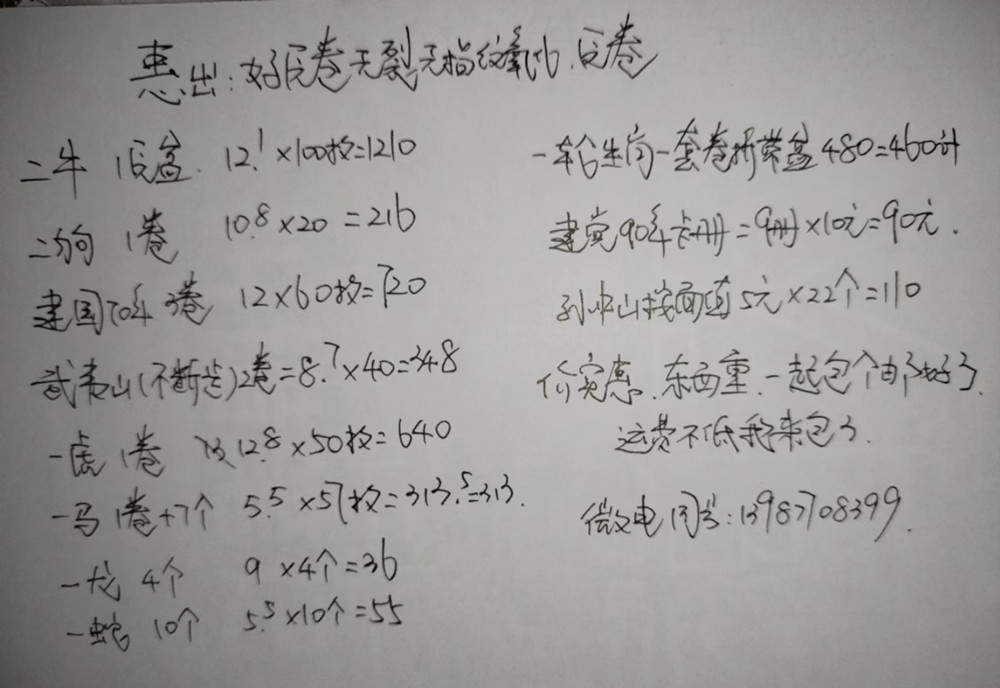 惠出:好原卷无裂无指纹氧化.原卷
二牛 1原盒. 12.1×100枚=1210
二狗 1卷 10.8×20=216
建国70年3卷 12×60枚=720
武夷山(不断齿)2卷=8.7×40=348
一虎1卷 12.8×50枚=640
一马1卷+7个 5.5×57枚=313.5=313.
一龙4个 9×4个=36
一蛇10个 5.5×10个=55
一轮生肖一套卷拆带盒480=460计
建党90年卡册=9册×10元=90元.
孙中山按面值5元×22个=110
价实惠.东西重.一起包个邮好了.
运费不低我来包了.
微电同号:13987708399.